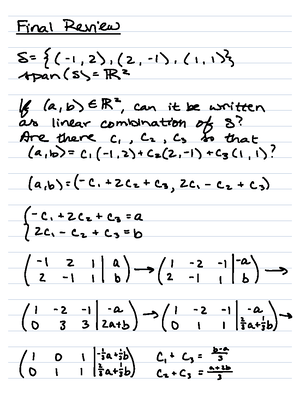 Final Review
S = {(-1,2), (2,-1), (1,1)}
span(S) = ℝ²
If (a,b) ∈ ℝ², can it be written
as linear combination of S?
Are there c₁, c₂, c₃ so that
(a,b) = c₁(-1,2) + c₂(2,-1) + c₃(1,1)?
(a,b) = (-c₁ + 2c₂ + c₃, 2c₁ - c₂ + c₃)
{-c₁ + 2c₂ + c₃ = a
{2c₁ - c₂ + c₃ = b
(-1 2 1 | a) → (1 -2 -1 | -a) →
(2 -1 1 | b) (2 -1 1 | b)
(1 -2 -1 | -a) → (1 -2 -1 | -a) →
(0 3 3 | 2a+b) (0 1 1 | ⅔a+⅓b)
(1 0 1 | ⅓a+⅔b) c₁ + c₃ = b-a/3
(0 1 1 | ⅔a+⅓b) c₂ + c₃ = a+2b/3